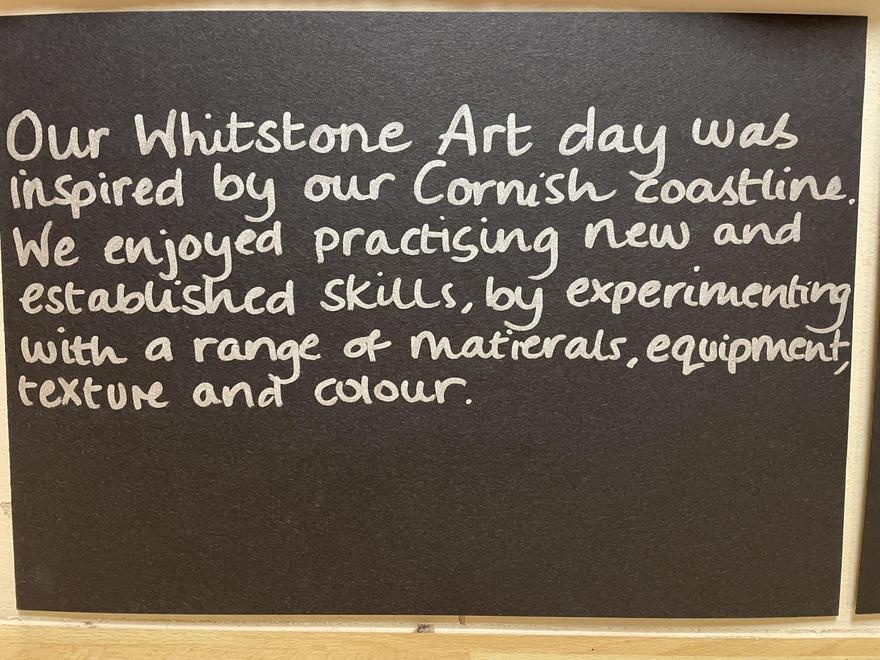 Our Whitstone Art day was
inspired by our Cornish coastline.
We enjoyed practising new and
established skills, by experimenting
with a range of matierals, equipment,
texture and colour.